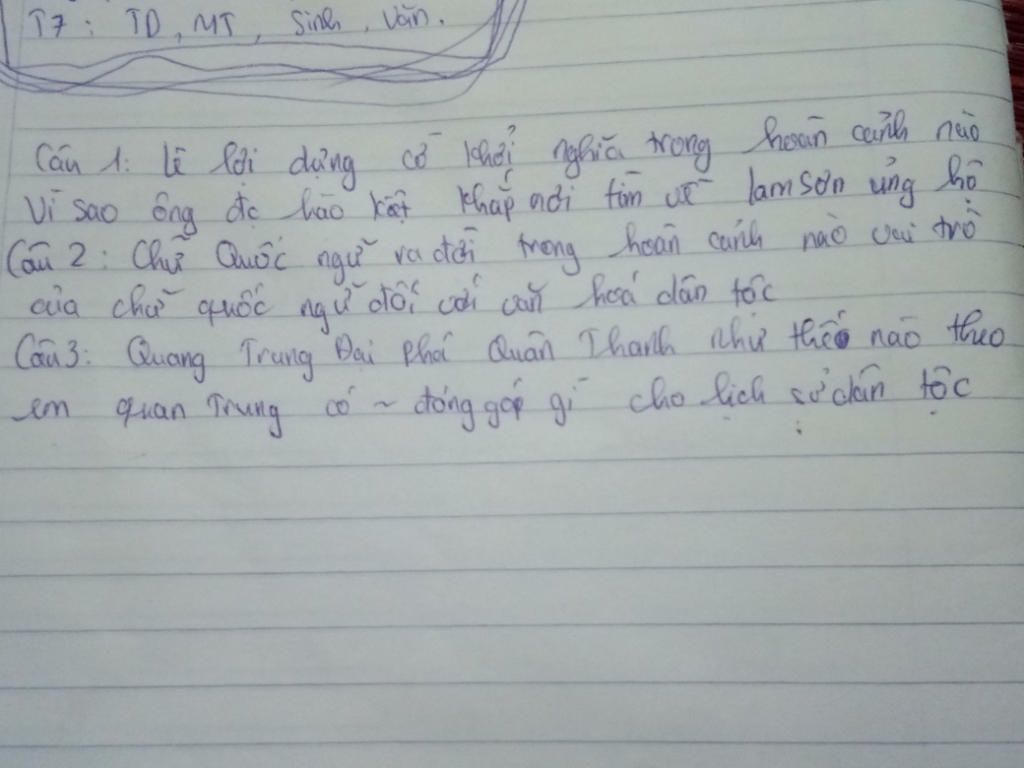 T7: TD, MT, Sinh, Văn.
Câu 1: Lê Lợi dựng cờ khởi nghĩa trong hoàn cảnh nào
Vì sao ông đc hào kiệt khắp nơi tìm về lam Sơn ủng hộ
Câu 2: Chữ Quốc ngữ ra đời trong hoàn cảnh nào vai trò
của chữ quốc ngữ đối với văn hoá dân tộc
Câu 3: Quang Trung Đại phá Quân Thanh như thế nào theo
em quan Trung có ~ đóng góp gì cho lịch sử dân tộc